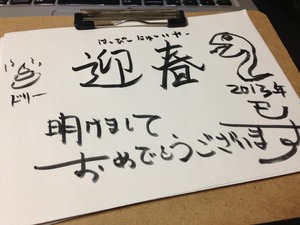 はっぴーにゅーいやー
迎春
ドリー
2013年
巳
明けまして
おめでとうございます